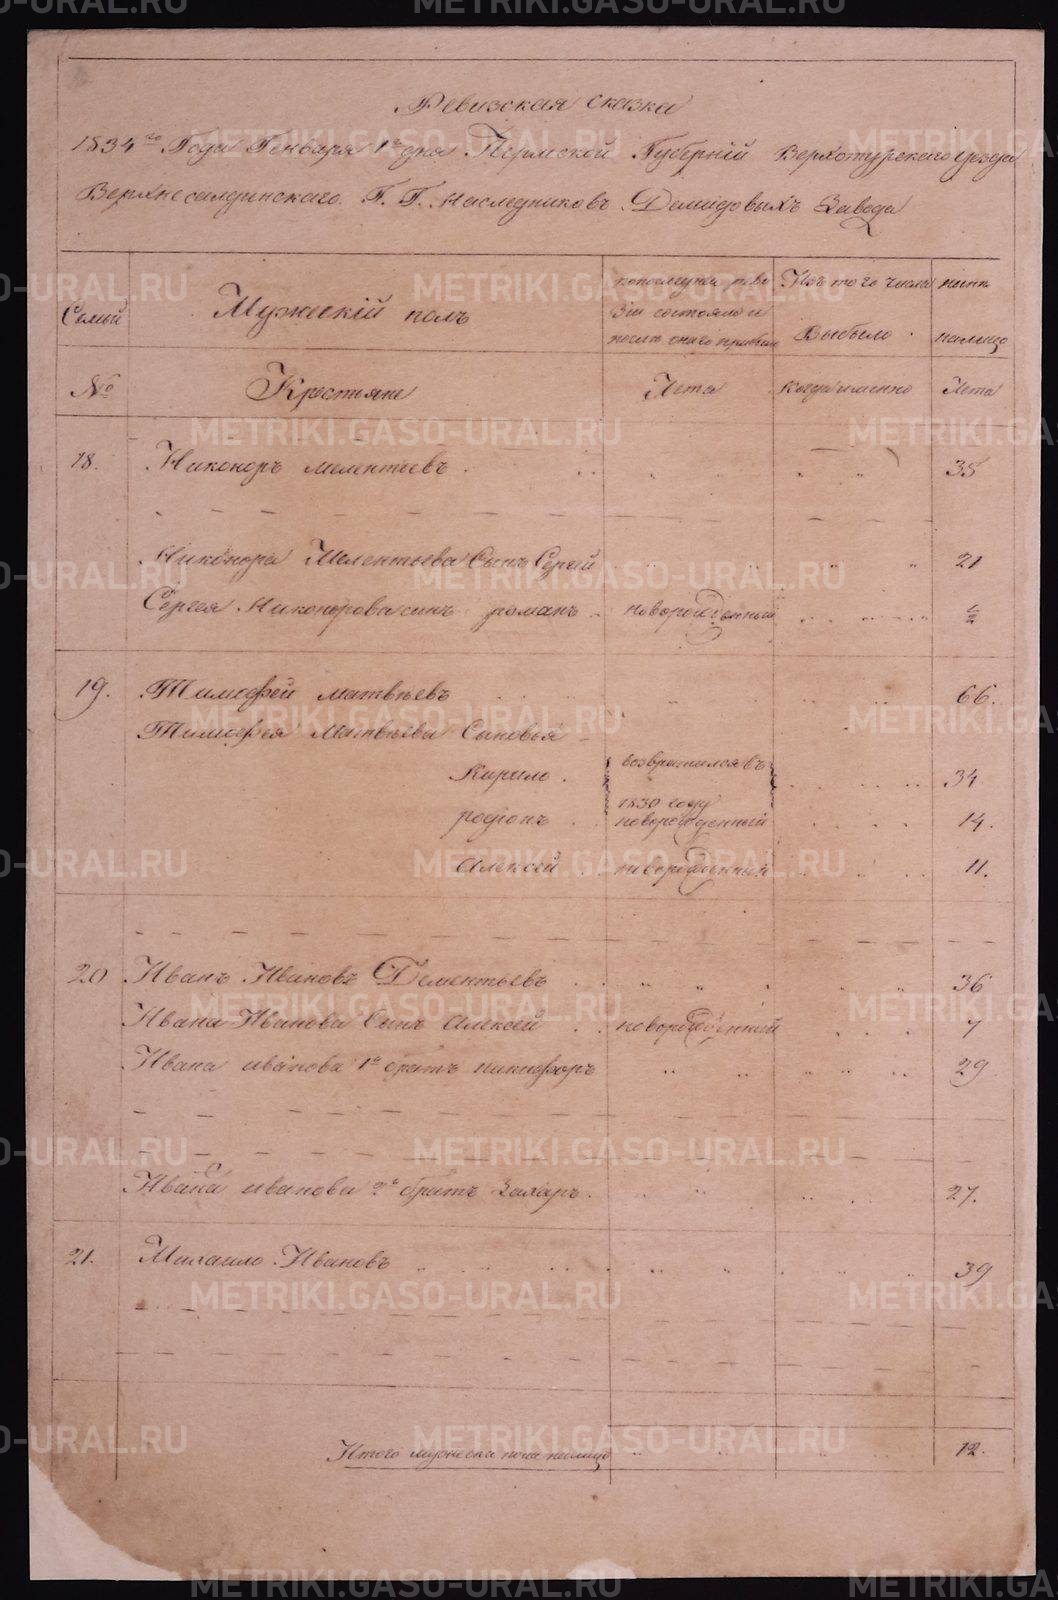 Ревизская сказка
1834го Года Генваря 1го дня Пермской Губерній Верхотурскаго уезда
Верхнесалдинскаго Г. Г. Наследниковъ Демидовыхъ Завода
Семьи
Мужескій полъ
По последней реви
зіи состояло и
после оной прибыло
Изъ того числа
Выбыло
ныне
налицо
№
Крестьяне
Лета
когда именно
Лета
18. Никоноръ мелентьевъ 35
Никонора Мелентьева Сынъ Сергей 21
Сергея Никонорова сынъ романъ новорожденный 1/2
19. Тимофей матвѣевъ 66.
Тимофея Матвѣева Сыновья
Кирило возвратился въ 1830 году 34
родіонъ новорожденный 14.
Алексей новорожденный 11.
20 Иванъ Ивановъ Дементьевъ 36
Ивана Иванова Сынъ Алексей новорожденный 7
Ивана иванова 1й братъ никифоръ 29
Ивана иванова 2й братъ Захаръ. 27.
21. Михаило Ивановъ 39
Итого мужеска пола налицо 12.
METRIKI.GASO-URAL.RU